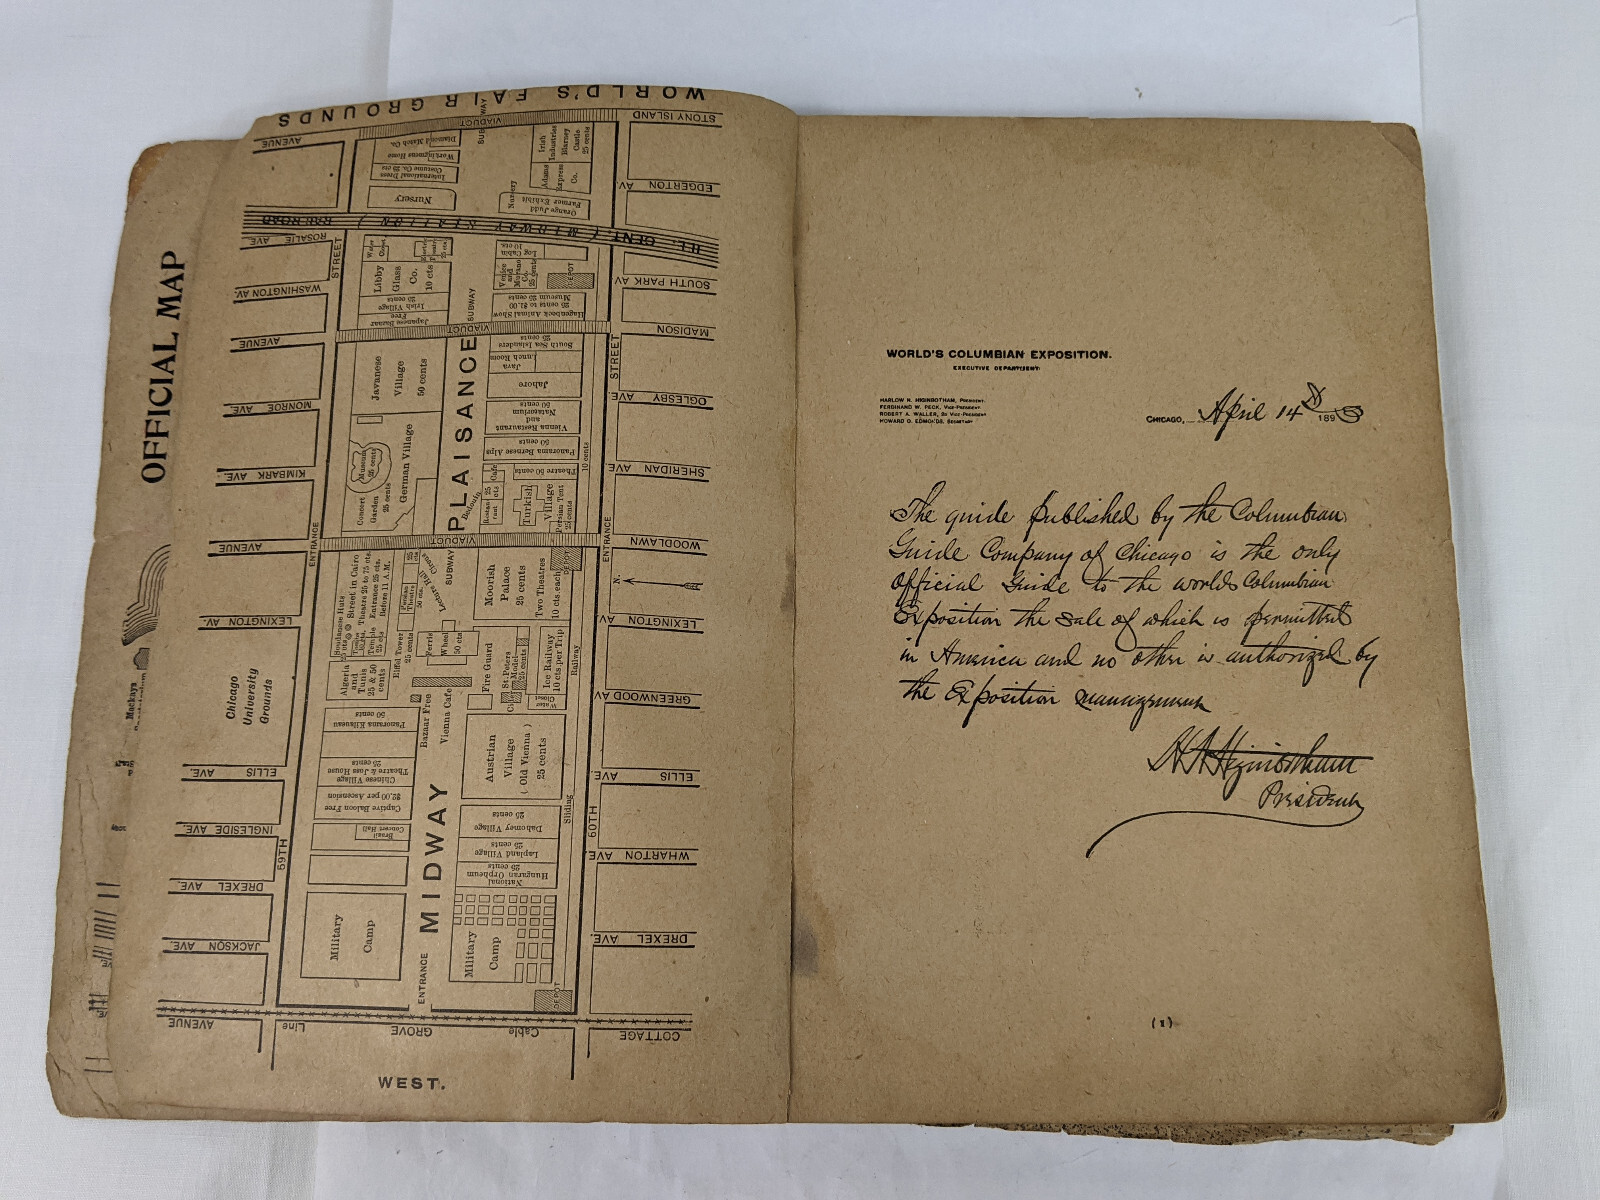 OFFICIAL MAP
WORLD'S FAIR GROUNDS
STONY ISLAND
AVENUE
VIADUCT
SUBWAY
Diamond Match Co.
Workingmens Home
International Dress
Costume Co. 25 cts
Nursery
Irish
Industries
Blarney
Castle
25 cents
Adams
Express
Co.
Nursery
Orange Judd
Farmer Exhibit
EDGERTON AV.
ILL. CENT. (MIDWAY STATION) RAILROAD
ROSALIE AVE.
STREET
Water
Closet
Libby
Glass
Co.
10 cts
Log Cabin
10 cts.
Venice
and
Murano
Co.
25 cents
DEPOT
SOUTH PARK AV
WASHINGTON AV.
Irish Village
25 cents
Japanese Bazaar
Free
SUBWAY
Hagenbeck Animal Show
25 cents to $1.00
Museum 25 cents
VIADUCT
MADISON
AVENUE
Javanese
Village
50 cents
South Sea Islanders
25 cents
Java
Lunch Room
Johore
STREET
MONROE AVE.
OGLESBY AVE.
Vienna Restaurant
and
Natatorium
50 cents
PLAISANCE
Museum
25 cents
German Village
Concert
Garden
25 cents
Panorama Bernese Alps
50 cents
10 cents
KIMBARK AVE.
SHERIDAN AVE
Theatre 50 cents
Cafe
Turkish
Village
Persian Tent
25 cents
Bedouin
ENTRANCE
ENTRANCE
VIADUCT
AVENUE
WOODLAWN
Soudanese Huts
Street in Cairo
Theatre 25 to 75 cts.
Entrance 25 cts.
Before 11 A.M.
Temple
25 cts
Persian
Theatre
50 cts.
Lecture Hall
Circus
SUBWAY
Moorish
Palace
25 cents
Two Theatres
10 cts. each
DEPOT
N.
LEXINGTON AV.
LEXINGTON AVE.
Algeria
and
Tunis
25 & 50
cents
Eiffel Tower
25 cents
Ferris
Wheel
50 cts
Fire Guard
St. Peters
Model
25 cents
Ice Railway
10 cts per Trip
Railway
Water
Closet
Chicago
University
Grounds
GREENWOOD AV
Mackays
Panorama Kilaueau
50 cents
Bazaar Free
Vienna Cafe
Austrian
Village
(Old Vienna)
25 cents
Chinese Village
Theatre & Joss House
25 cents
ELLIS AVE.
ELLIS AVE.
Captive Baloon Free
$2.00 per Ascension
Sliding
60TH
Brazil
Concert Hall
MIDWAY
Dahomey Village
25 cents
Lapland Village
25 cents
Hungaran Orpheum
25 cents
National
INGLESIDE AVE.
59TH
WHARTON AVE.
DREXEL AVE.
Military
Camp
Military
Camp
DREXEL AVE.
JACKSON AVE.
ENTRANCE
DEPOT
COTTAGE GROVE AVENUE
Cable Line
WEST.
WORLD'S COLUMBIAN EXPOSITION.
EXECUTIVE DEPARTMENT.
HARLOW N. HIGINBOTHAM, PRESIDENT.
FERDINAND W. PECK, VICE-PRESIDENT
ROBERT A. WALLER, 2D VICE-PRESIDENT
HOWARD O. EDMONDS, SECRETARY
CHICAGO, April 14th 1893
The guide published by the Columbian
Guide Company of Chicago is the only
official Guide to the worlds Columbian
Exposition the sale of which is permitted
in America and no other is authorized by
the Exposition management
H N Higinbotham
President
(1)